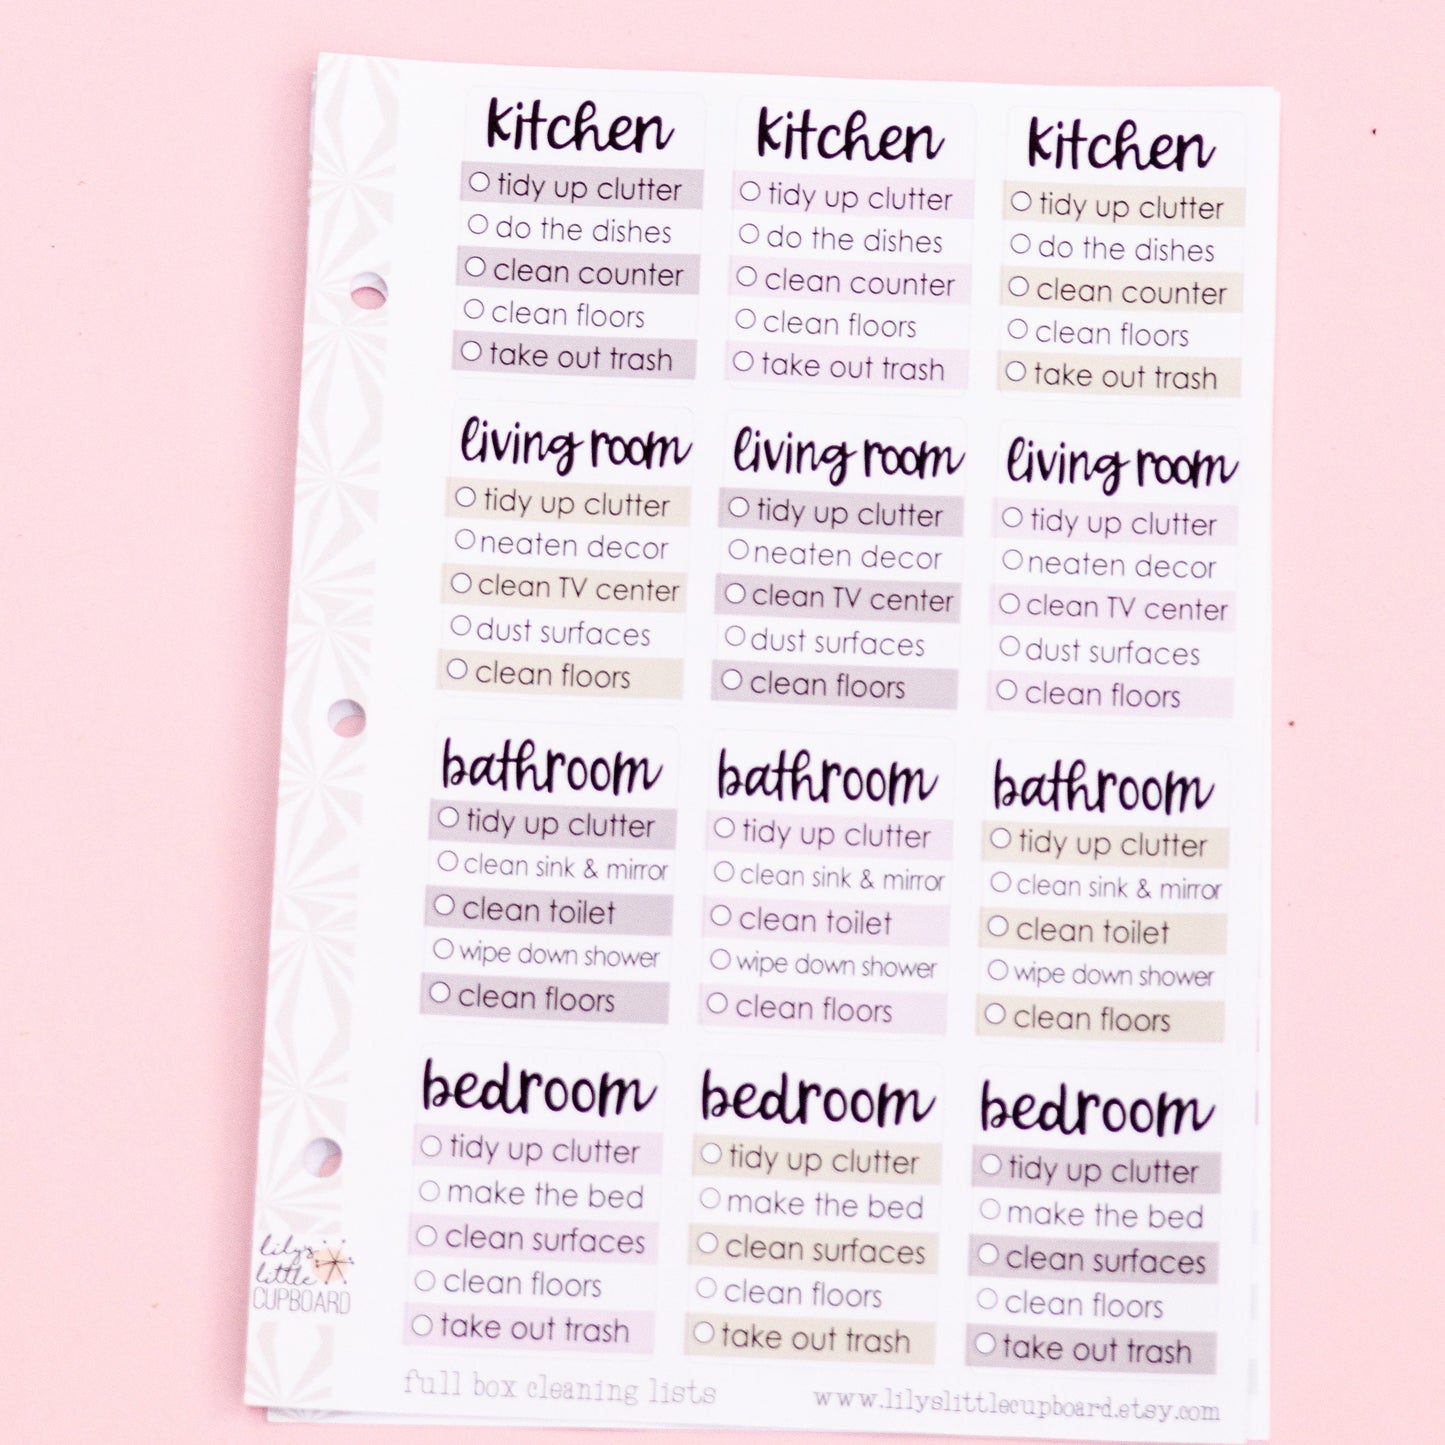 kitchen
tidy up clutter
do the dishes
clean counter
clean floors
take out trash
kitchen
tidy up clutter
do the dishes
clean counter
clean floors
take out trash
kitchen
tidy up clutter
do the dishes
clean counter
clean floors
take out trash
living room
tidy up clutter
neaten decor
clean TV center
dust surfaces
clean floors
living room
tidy up clutter
neaten decor
clean TV center
dust surfaces
clean floors
living room
tidy up clutter
neaten decor
clean TV center
dust surfaces
clean floors
bathroom
tidy up clutter
clean sink & mirror
clean toilet
wipe down shower
clean floors
bathroom
tidy up clutter
clean sink & mirror
clean toilet
wipe down shower
clean floors
bathroom
tidy up clutter
clean sink & mirror
clean toilet
wipe down shower
clean floors
bedroom
tidy up clutter
make the bed
clean surfaces
clean floors
take out trash
bedroom
tidy up clutter
make the bed
clean surfaces
clean floors
take out trash
bedroom
tidy up clutter
make the bed
clean surfaces
clean floors
take out trash
lilys
little
CUPBOARD
full box cleaning lists
www.lilyslittlecupboard.etsy.com